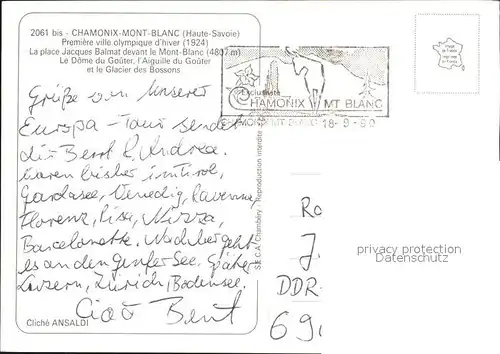 2061 bis - CHAMONIX-MONT-BLANC (Haute-Savoie)
Première ville olympique d'hiver (1924)
La place Jacques Balmat devant le Mont-Blanc (4807 m)
Le Dôme du Goûter, l'Aiguille du Goûter
et le Glacier des Bossons
Exclusiviste
CHAMONIX MT BLANC
CHAMONIX MT BLANC 18-9-90
Grüße von unserer
Europa-Tour sendet
dir Bernt & Andrea.
Waren bisher in Tirol,
Gardasee, Venedig, Ravenna,
Florenz, Pisa, Nizza,
Barcelonette. Nachher geht
es an den Genfer See. Später
Luzern, Zürich, Bodensee.
Ciao Bernt
Cliché ANSALDI
S.E.C.A. Chambéry - Reproduction interdite
Ro
J
DDR-
69
privacy protection
Datenschutz